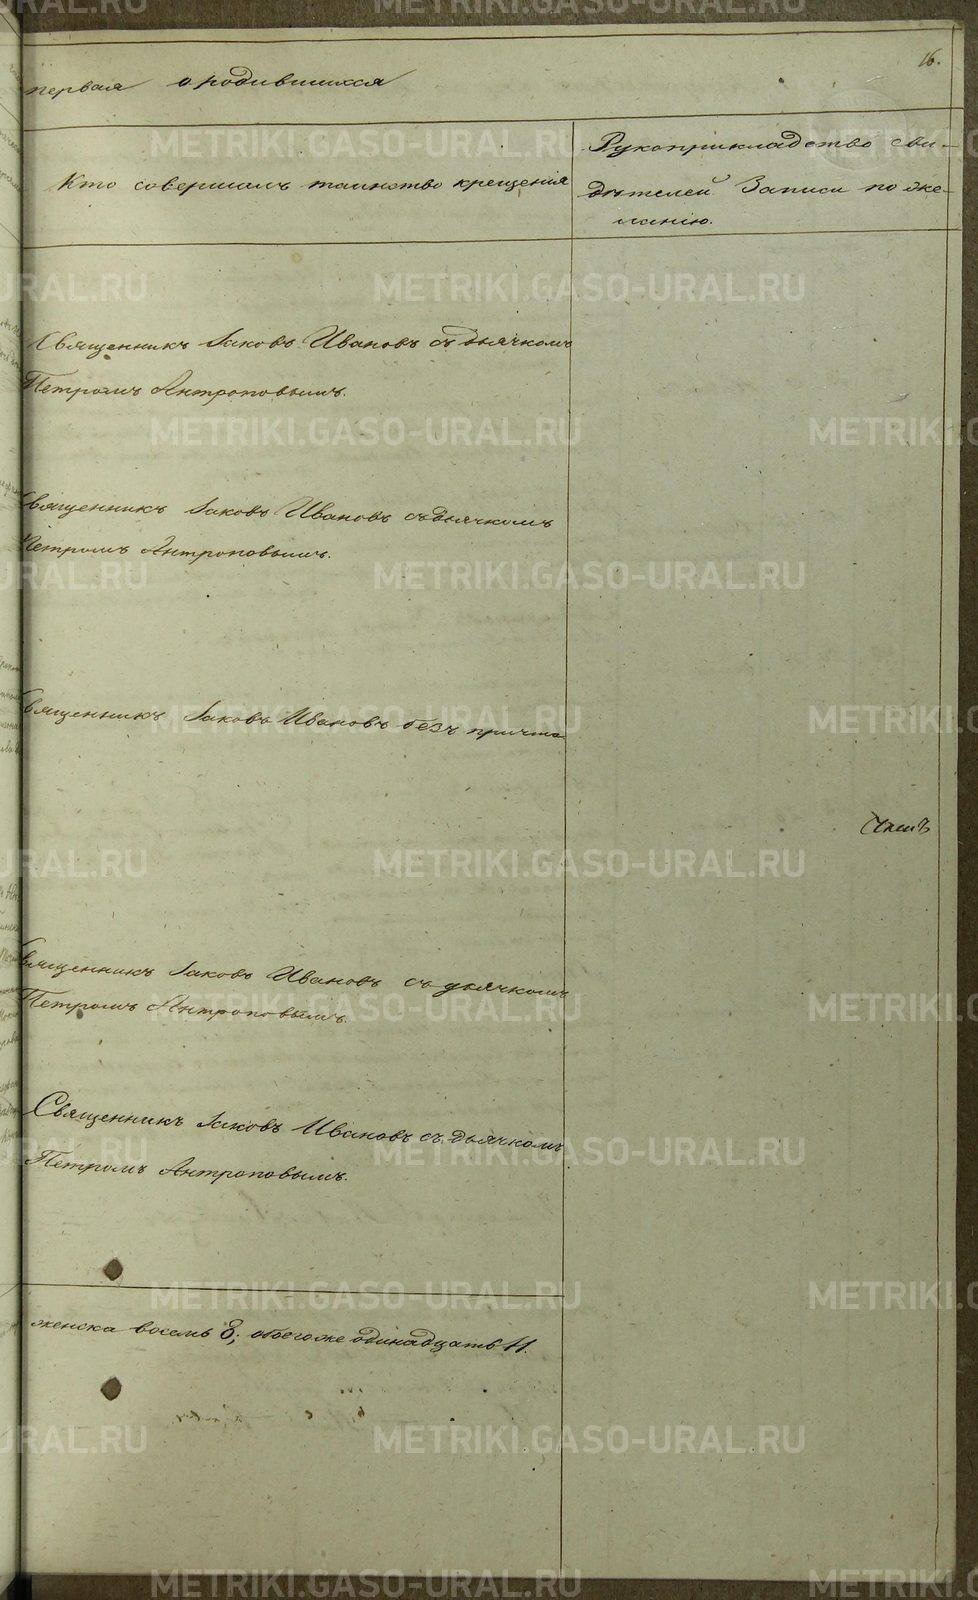 16.
первая о родившихся
Кто совершалъ таинство крещенія
Рукоприкладство сви-
дѣтелей Записи по же-
ланію.
Священникъ Іаковъ Ивановъ съ дьячкомъ
Петромъ Антроповымъ.
Священникъ Іаковъ Ивановъ съ дьячкомъ
Петромъ Антроповымъ.
Священникъ Іаковъ Ивановъ безъ причта
Священникъ Іаковъ Ивановъ съ дьячкомъ
Петромъ Антроповымъ.
Священникъ Іаковъ Ивановъ съ дьячкомъ
Петромъ Антроповымъ.
женска восемь 8; обоего же одинадцать 11.
METRIKI.GASO-URAL.RU